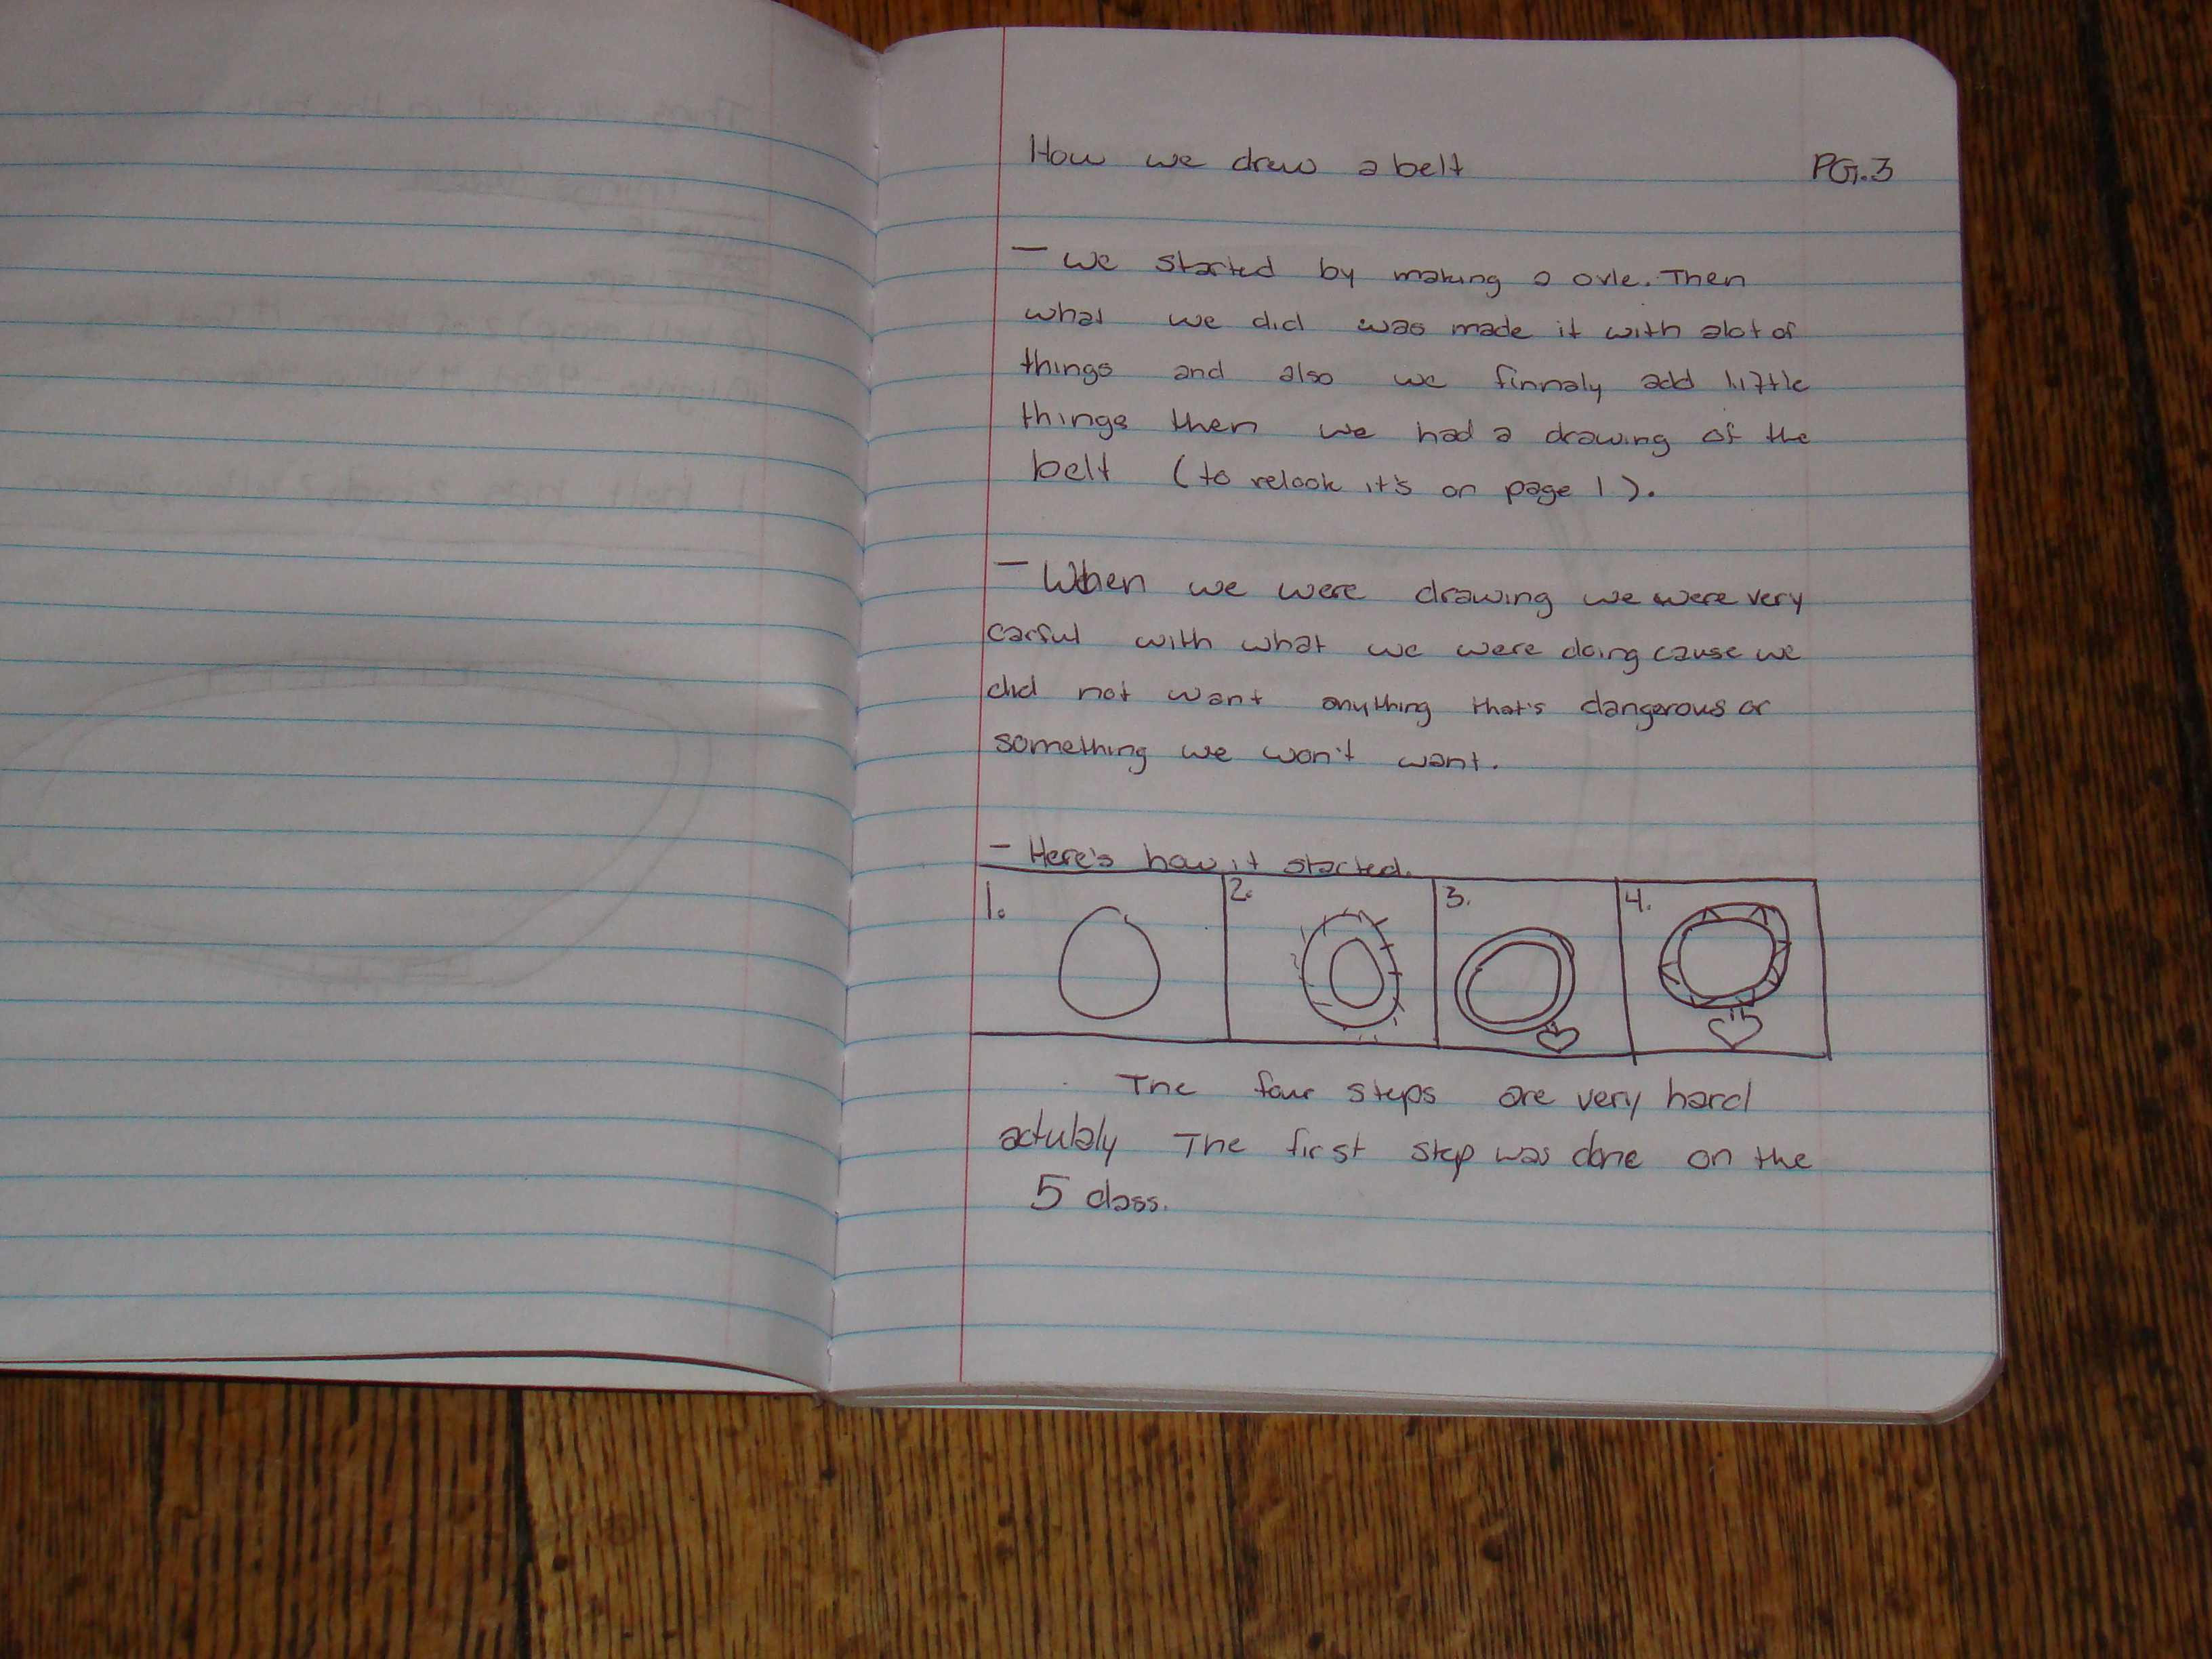 How we drew a belt PG.3
- we started by making a ovle. Then
what we did was made it with alot of
things and also we finnaly add little
things then we had a drawing of the
belt (to relook it's on page 1).
- When we were drawing we were very
carful with what we were doing cause we
did not want anything that's dangerous or
something we won't want.
- Here's how it started.
1. 2. 3. 4.
The four steps are very hard
actulaly The first step was done on the
5 class.